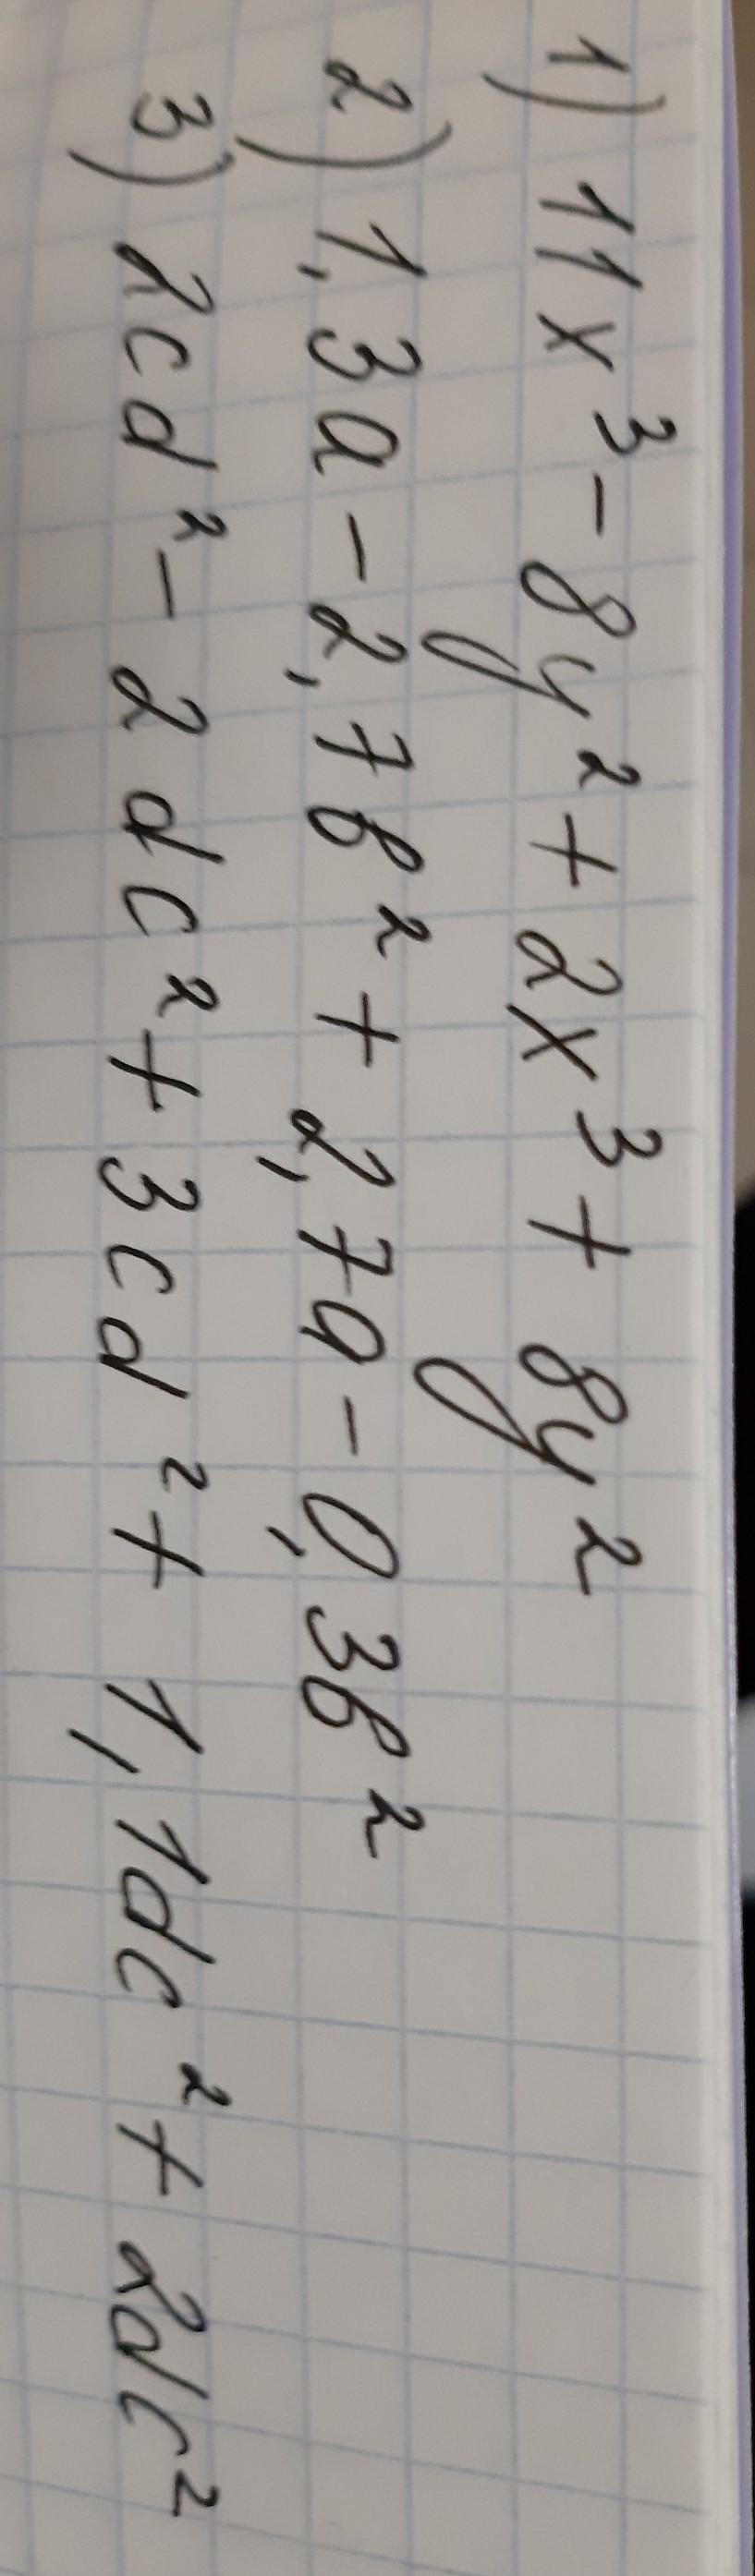 1) 11x³ - 8y² + 2x³ + 8y²
2) 1,3a - 2,7b² + 2,7a - 0,3b²
3) 2cd² - 2dc² + 3cd² + 1,1dc² + 2dc²